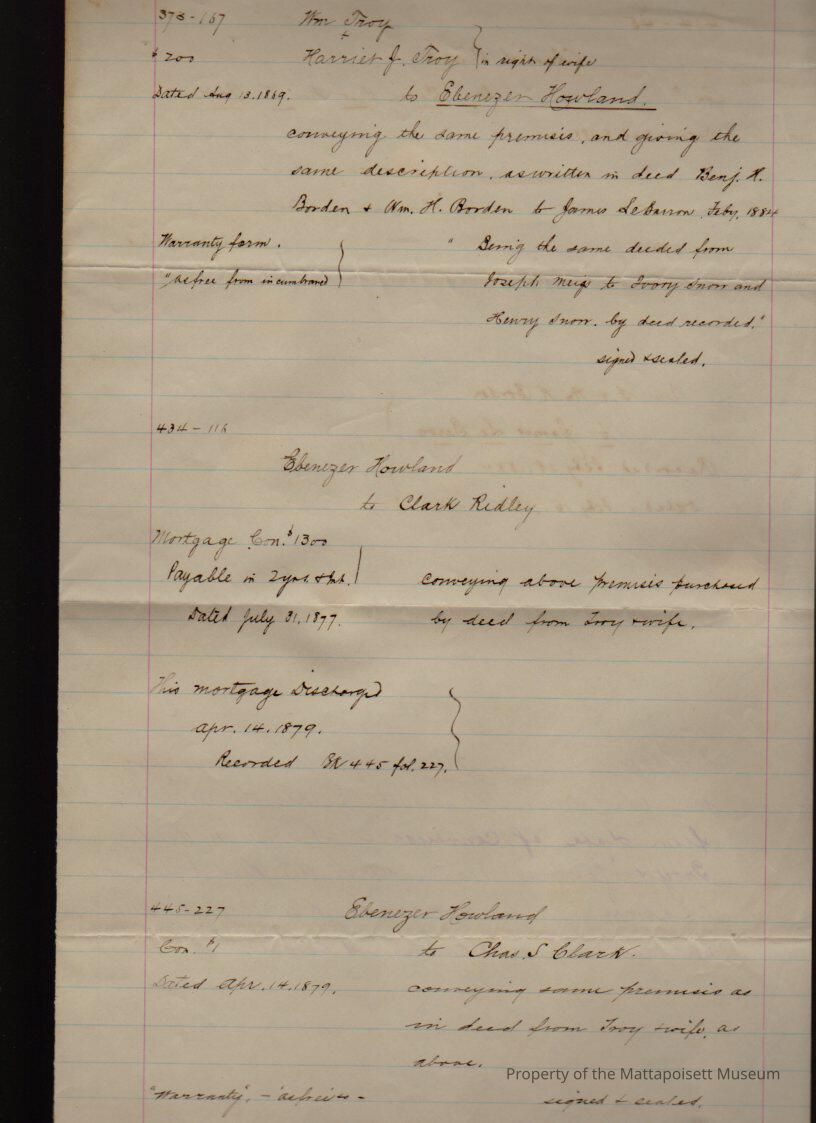 373-167 Wm Troy
+
$200 Harriet J. Troy } in right of wife
Dated Aug 13.1869. to Ebenezer Howland.
conveying the same premises, and giving the
same description, as written in deed Benj. H.
Borden & Wm. H. Borden to James LeBarron, Feby, 1884
Warranty form. " Being the same deeded from
"as free from incumbrance" Joseph Meigs to Ivory Snow and
Henry Snow. by deed recorded."
signed & sealed.
434-116
Ebenezer Howland
to Clark Ridley
Mortgage Con. $1300
Payable in 2yrs & Int. conveying above premises purchased
Dated July 31.1877. by deed from Troy & wife.
This mortgage Discharged
Apr. 14. 1879.
Recorded BK 445 fol. 227.
445-227 Ebenezer Howland
Con. $1 to Chas. S Clark.
Dated Apr. 14.1879. conveying same premises as
in deed from Troy & wife, as
above.
Property of the Mattapoisett Museum
"Warranty", - signed & sealed.